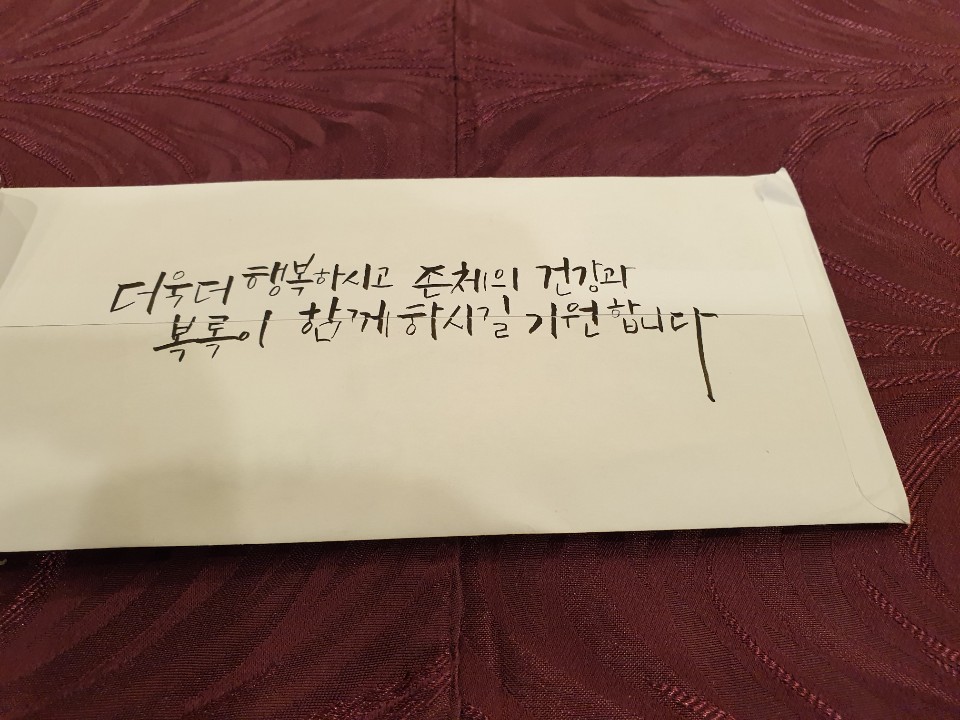 더욱더 행복하시고 존체의 건강과
복록이 함께 하시길 기원합니다